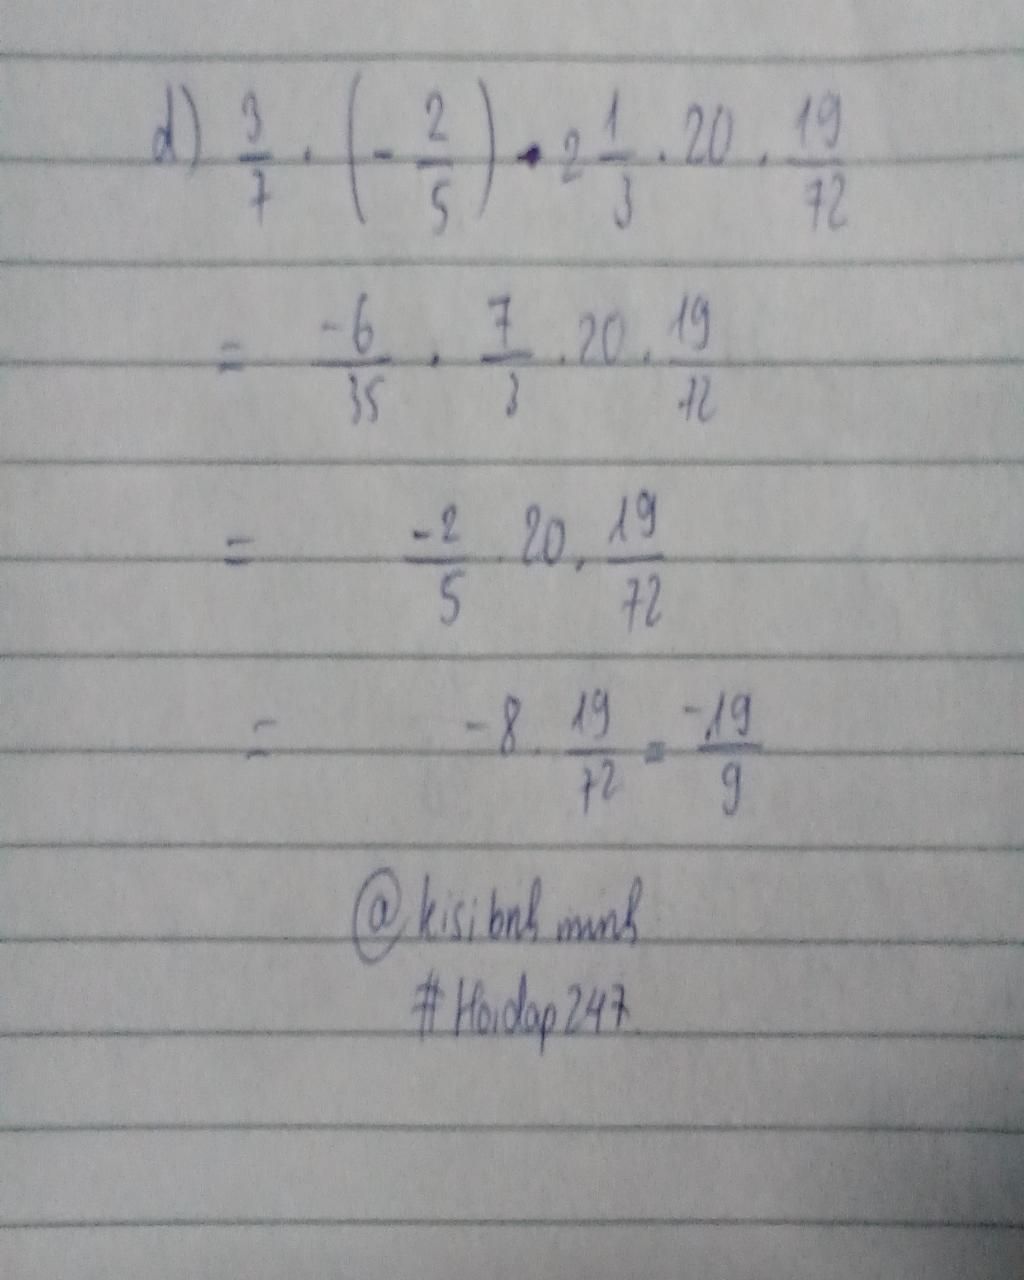 d) 3/7 . (-2/5) . 2 1/3 . 20 . 19/72
= -6/35 . 7/3 . 20 . 19/72
= -2/5 . 20 . 19/72
= -8 . 19/72 = -19/9
@kisibnh minh
#Hoidap247